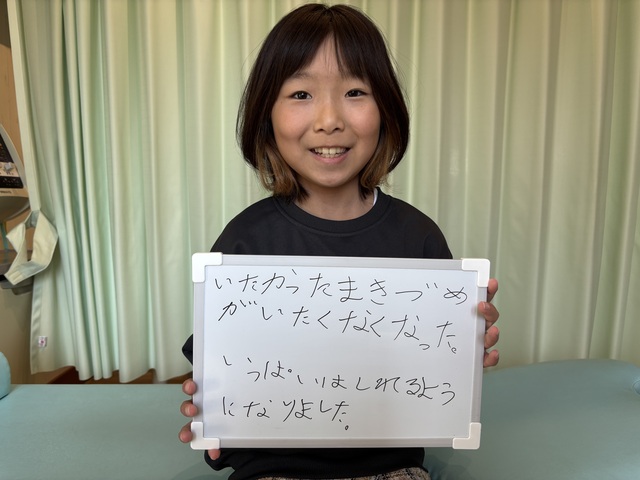 いたかったまきづめ
がいたくなくなった。
いっぱいはしれてるよう
になりました。